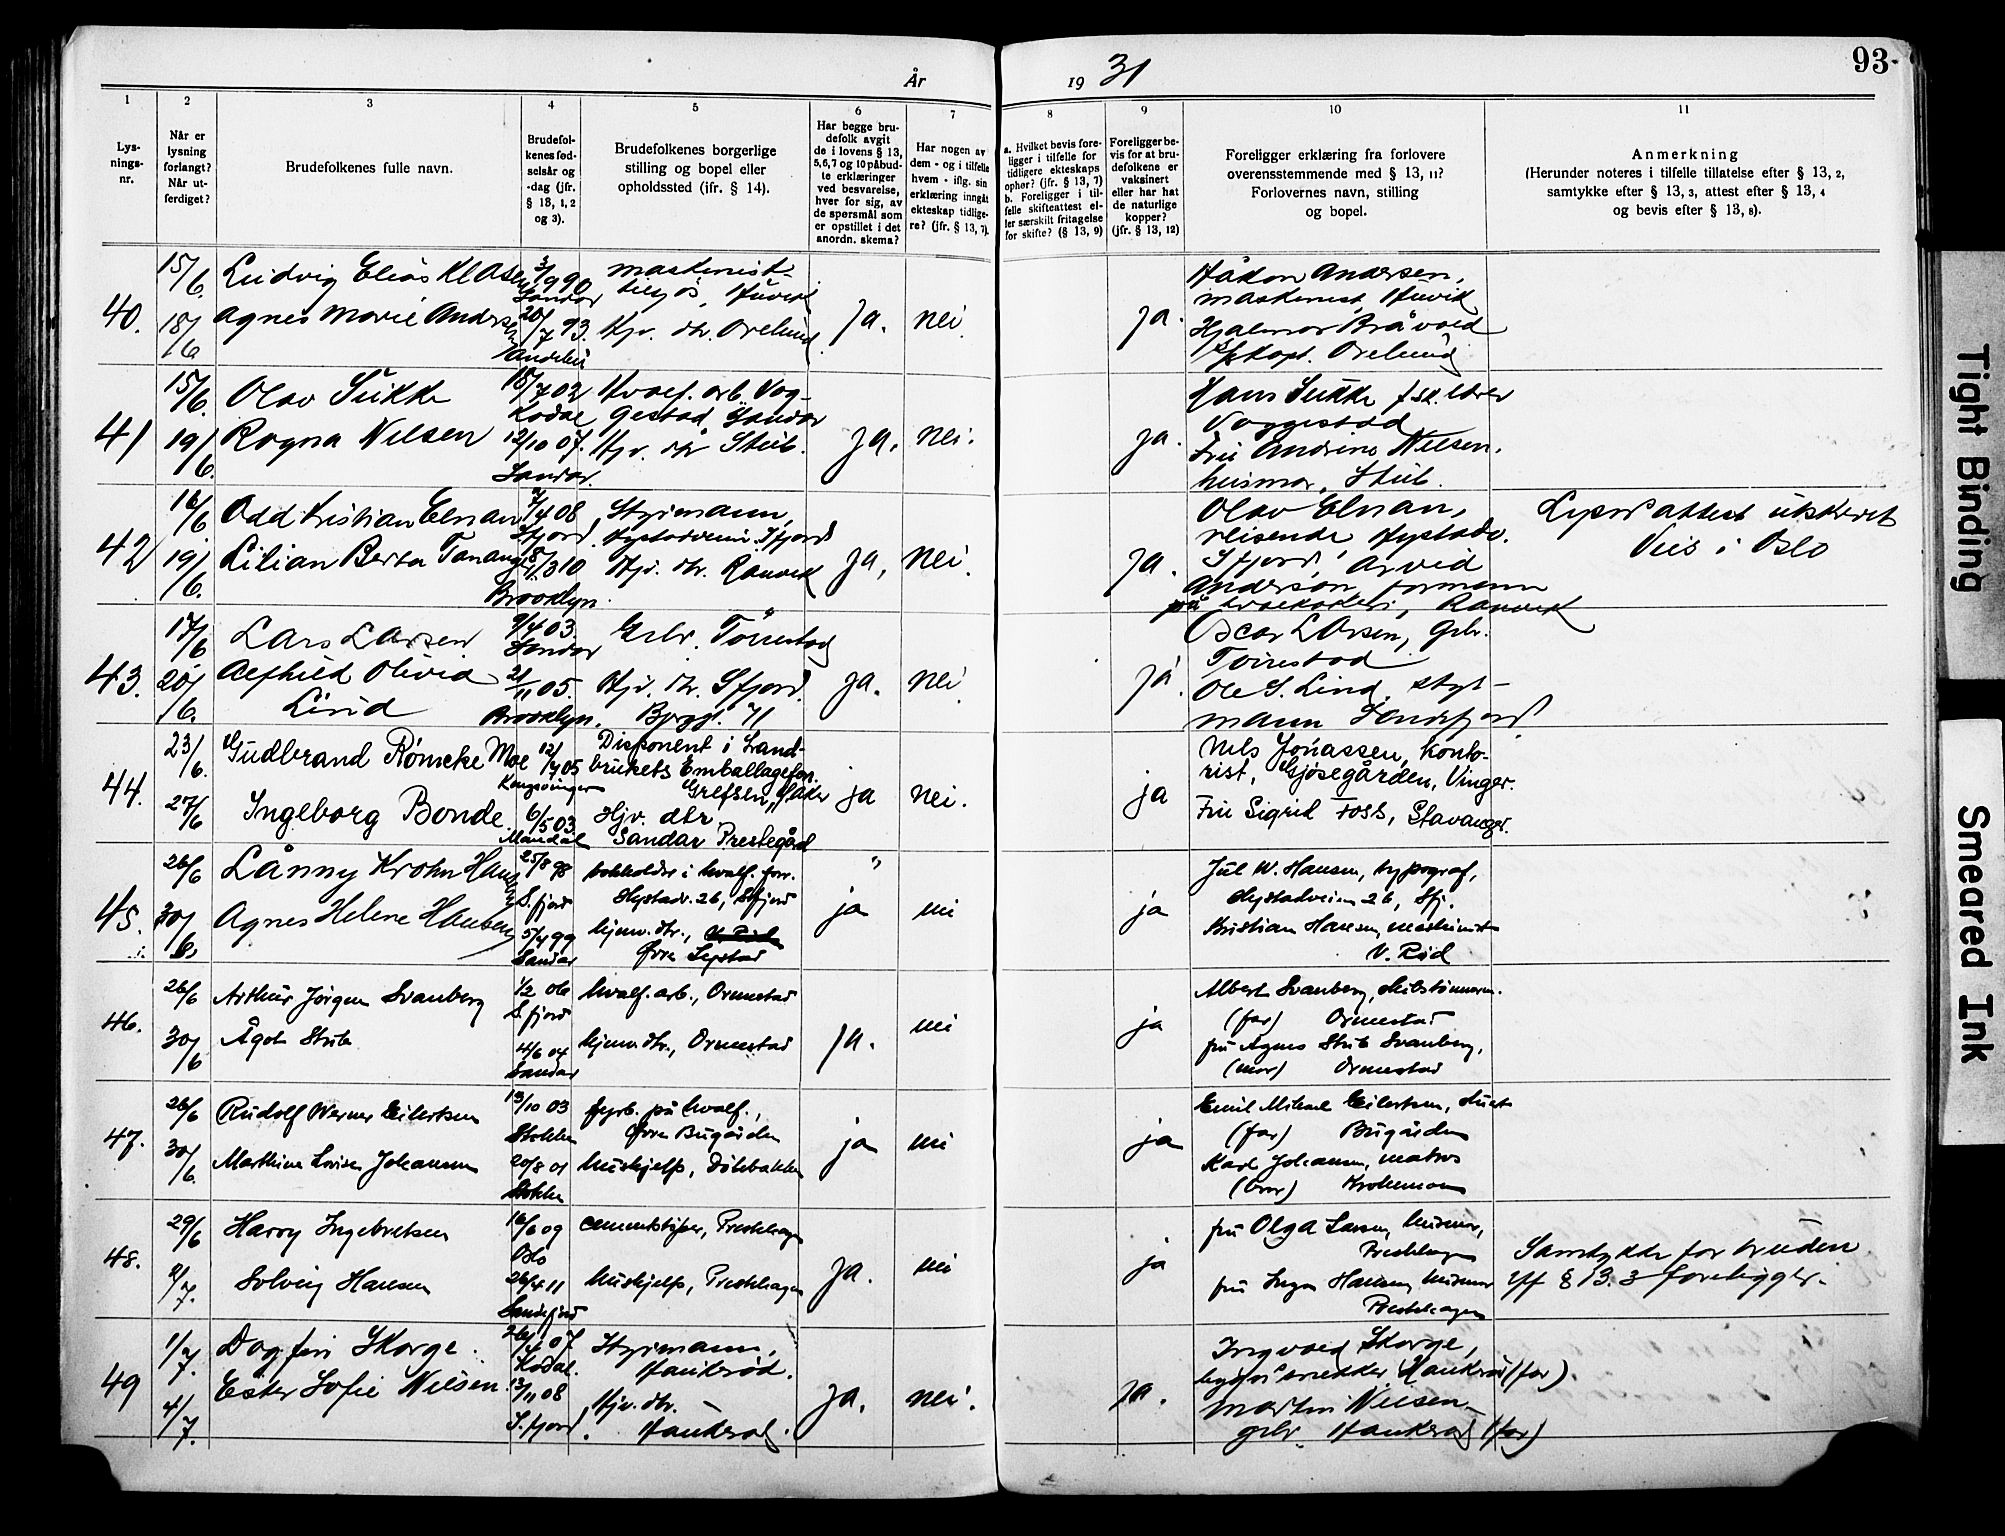 År
19 31
93
1
2
3
4
5
6
7
8
9
10
11
Lys-
nings-
nr.
Når er
lysning
forlangt?
Når ut-
ferdiget?
Brudefolkenes fulle navn.
Brudefol-
kenes fød-
selsår og
-dag (jfr.
§ 13, 1, 2
og 3).
Brudefolkenes borgerlige
stilling og bopel eller
opholdssted (ifr. § 14).
Har begge bru-
defolk avgit
de i lovens § 13,
5, 6, 7 og 10 påbud-
te erklæringer
ved besvarelse,
hver for sig, av
de spørsmål som
er opstillet i det
anordn. skema?
Har nogen av
dem - og i tilfelle
hvem - iflg. sin
erklæring inngått
ekteskap tidlige-
re? (jfr. § 13, 7).
a. Hvilket bevis fore-
ligger i tilfelle for
tidligere ekteskaps
ophør? (jfr. § 13, 7)
b. Foreligger i til-
felle skifteattest el-
ler særskilt fritagelse
for skifte? (§ 13, 9)
Foreligger be-
vis for at bru-
defolkene er
vaksinert
eller har hat
de naturlige
kopper?
(jfr. § 13, 12)
Foreligger erklæring fra forlovere
overensstemmende med § 13, 11?
Forlovernes navn, stilling
og bopel.
Anmerkning
(Herunder noteres i tilfelle tillatelse efter § 13, 2,
samtykke efter § 13, 3, attest efter § 13, 4
og bevis efter § 13, 8).
40.
15/6.
18/6
Ludvig Elias Klasen
Agnes Marie Andersen
3/9 90
Sandar
20/7 93.
Andebu
maskinist
tilsjøs, Huvik
Hjv. dtr. Orelund
Ja.
nei.
ja.
Håkon Andersen,
maskinist, Huvik
Hjalmar Bråvold
Kapt. Orelund
41
15/6.
19/6.
Olav Sukke
Ragna Nilsen
15/7 02
Kodal
12/10 07.
Sandar.
Hvalf. arb. Vog-
gestad, Sandar
Hjv. dtr Stub.
ja.
nei.
ja.
Hans Sukke
Voggestad
Fru Andrine Nilsen.
husmor, Stub.
42
16/6
19/6.
Odd Kristian Elnan
Lilian Berta
4 08
Sfjord
3 10
Brooklyn.
Styrmann,
Hystadveien. Sfjord
Hjv. dtr. Ranvik
ja,
nei.
Ja.
Olav Elnan,
reisende Hystadv.
Sfjord, Arvid
Anderson, formann
på Ranvik
Lysn attest utskrevet
Vies i Oslo
43.
17/6
20/6.
Lars Larsen
Alfhild Olivia
Lind
9/4 03.
Sandar
21/11 05.
Brooklyn.
Grbr. Törrestad
Hjv. dtr. Sfjord.
Bjrggt. 71
Ja.
nei.
ja.
Oscar Larsen, Gbr.
Ole S. Lind, Styr-
mann Sandefjord
44.
23/6.
27/6
Gudbrand Rømcke Moe
Ingeborg Bonde.
12/7 05
Kongsvinger
6/5 03.
Mandal
Disponent i Land-
brukets Emballagefor.
Grefsen, Aker
Hjv. dtr.
Sandar Prestegård
ja
nei.
ja
Nils Jonassen, konto-
rist, Gjøsegården, Vinger.
Fru Sigrid Foss, Stavanger.
45.
26/6
30/6
Lånny Krohn Hansen
Agnes Helene Hansen
25/8 98
S.fjord
5/4 99
Sandar
bokholder i hvalf. forr.
Hystadv. 26, Sfjord
hjemv. dtr.,
Øvre
"
ja
nei
ja
Jul W. Hansen, typograf,
Hystadveien 26, Sfj.
Kristian Hansen, maskinist
V. Rød
46.
26/6
30/6
Arthur Jørgen Svanberg
Ågot Stub
1/2 06
S.fjord
4/6 04
Sandar
hvalf. arb., Ormestad
hjemv. dtr., Ormestad
Ja.
nei
ja
Albert Svanberg,
(far) Ormestad
fru Agnes Stub Svanberg,
(mor) Ormestad
47.
26/6
30/6.
Rudolf Werner Eilertsen
Mathine Lovise Johansen
13/10 03
Stokke
20/8 01
Stokke
fyrb. på hvalf.,
Øvre Bugården
hushjelp,
ja
nei
ja
Emil Mikael Eilertsen,
(far) Bugården
Karl Johansen, matros
(bror)
48.
29/6
2/7.
Harry Ingebretsen
Solveig Hansen
16/6 09
Oslo
26/4 11
Sandefjord
cementstøper, Prestehagen
hushjelp, Prestehagen
Ja.
nei
ja
fru Olga Larsen, husmor,
Prestehagen
fru Inga Hansen, husmor
Prestehagen
Samtykke for bruden
eff § 13. 3 foreligger.
49
1/7.
4/7.
Dagfin Skorge.
Ester Sofie Nilsen.
07
Kodal.
13/11 08
S.fjord.
Styrmann,
Haukerød.
Hjv. dtr.
Haukerød.
Ja.
nei.
Ja.
Ingvald Skorge,
snekker Haukerød (far).
Martin Nilsen
gbr. Haukerød (far)
Tight Binding
Smeared Ink